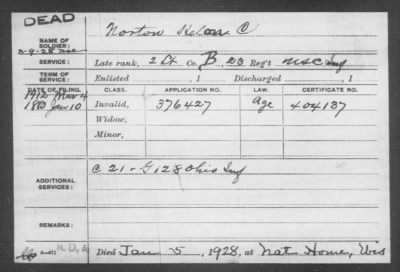 DEAD
NAME OF SOLDIER: Norton C
SERVICE: Late rank, 2 Lt Co. B, 23 Reg't Inf
TERM OF SERVICE: Enlisted , 1 Discharged , 1
DATE OF FILING. CLASS. APPLICATION NO. LAW. CERTIFICATE NO.
1912 Mar 4
1880 Jan 10 Invalid, 376427 Age 404137
Widow,
Minor,
ADDITIONAL SERVICES: C 21 - G 128 Ohio Inf
REMARKS:
N.D.A. Died Jan 5, 1928, at Nat Home, Wis